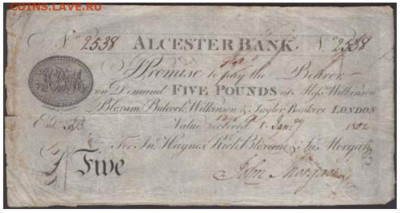 COINS.SU
No. 2538 ALCESTER BANK. No. 2538
I Promise to pay the Bearer
on Demand FIVE POUNDS at Messrs. Wilkinson
Bloxam Bullock, Wilkinson & Taylor Bankers LONDON
Value received Jany. 1802
Entd.
For Jno. Haynes Richd. Bloxome & Jno. Morgan
£ Five John Morgan